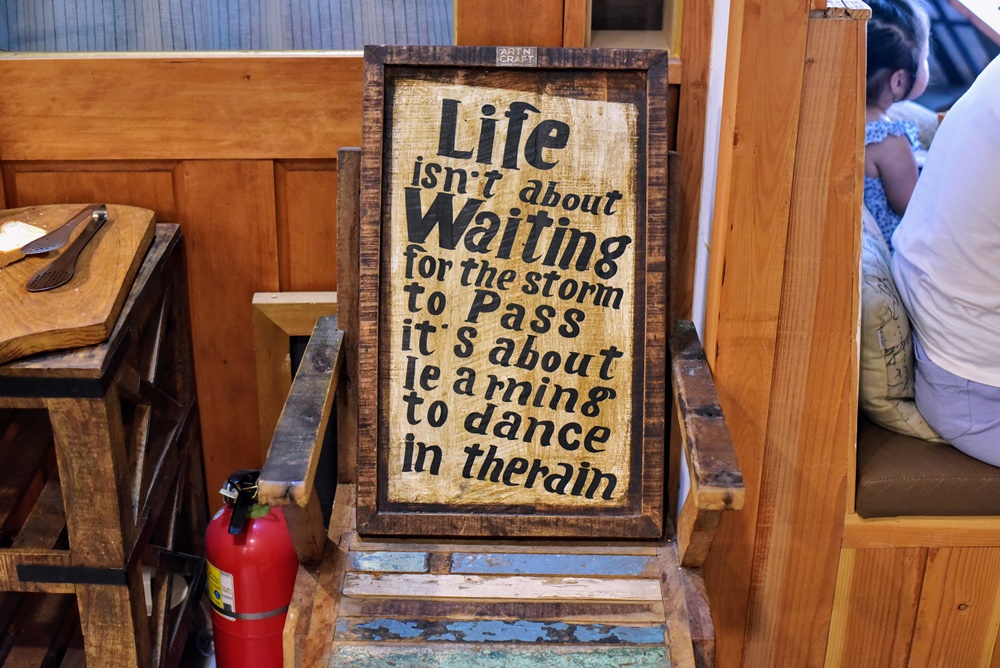 ART N
CRAFT
Life
isn't about
Waiting
for the storm
to Pass
it's about
learning
to dance
in therain